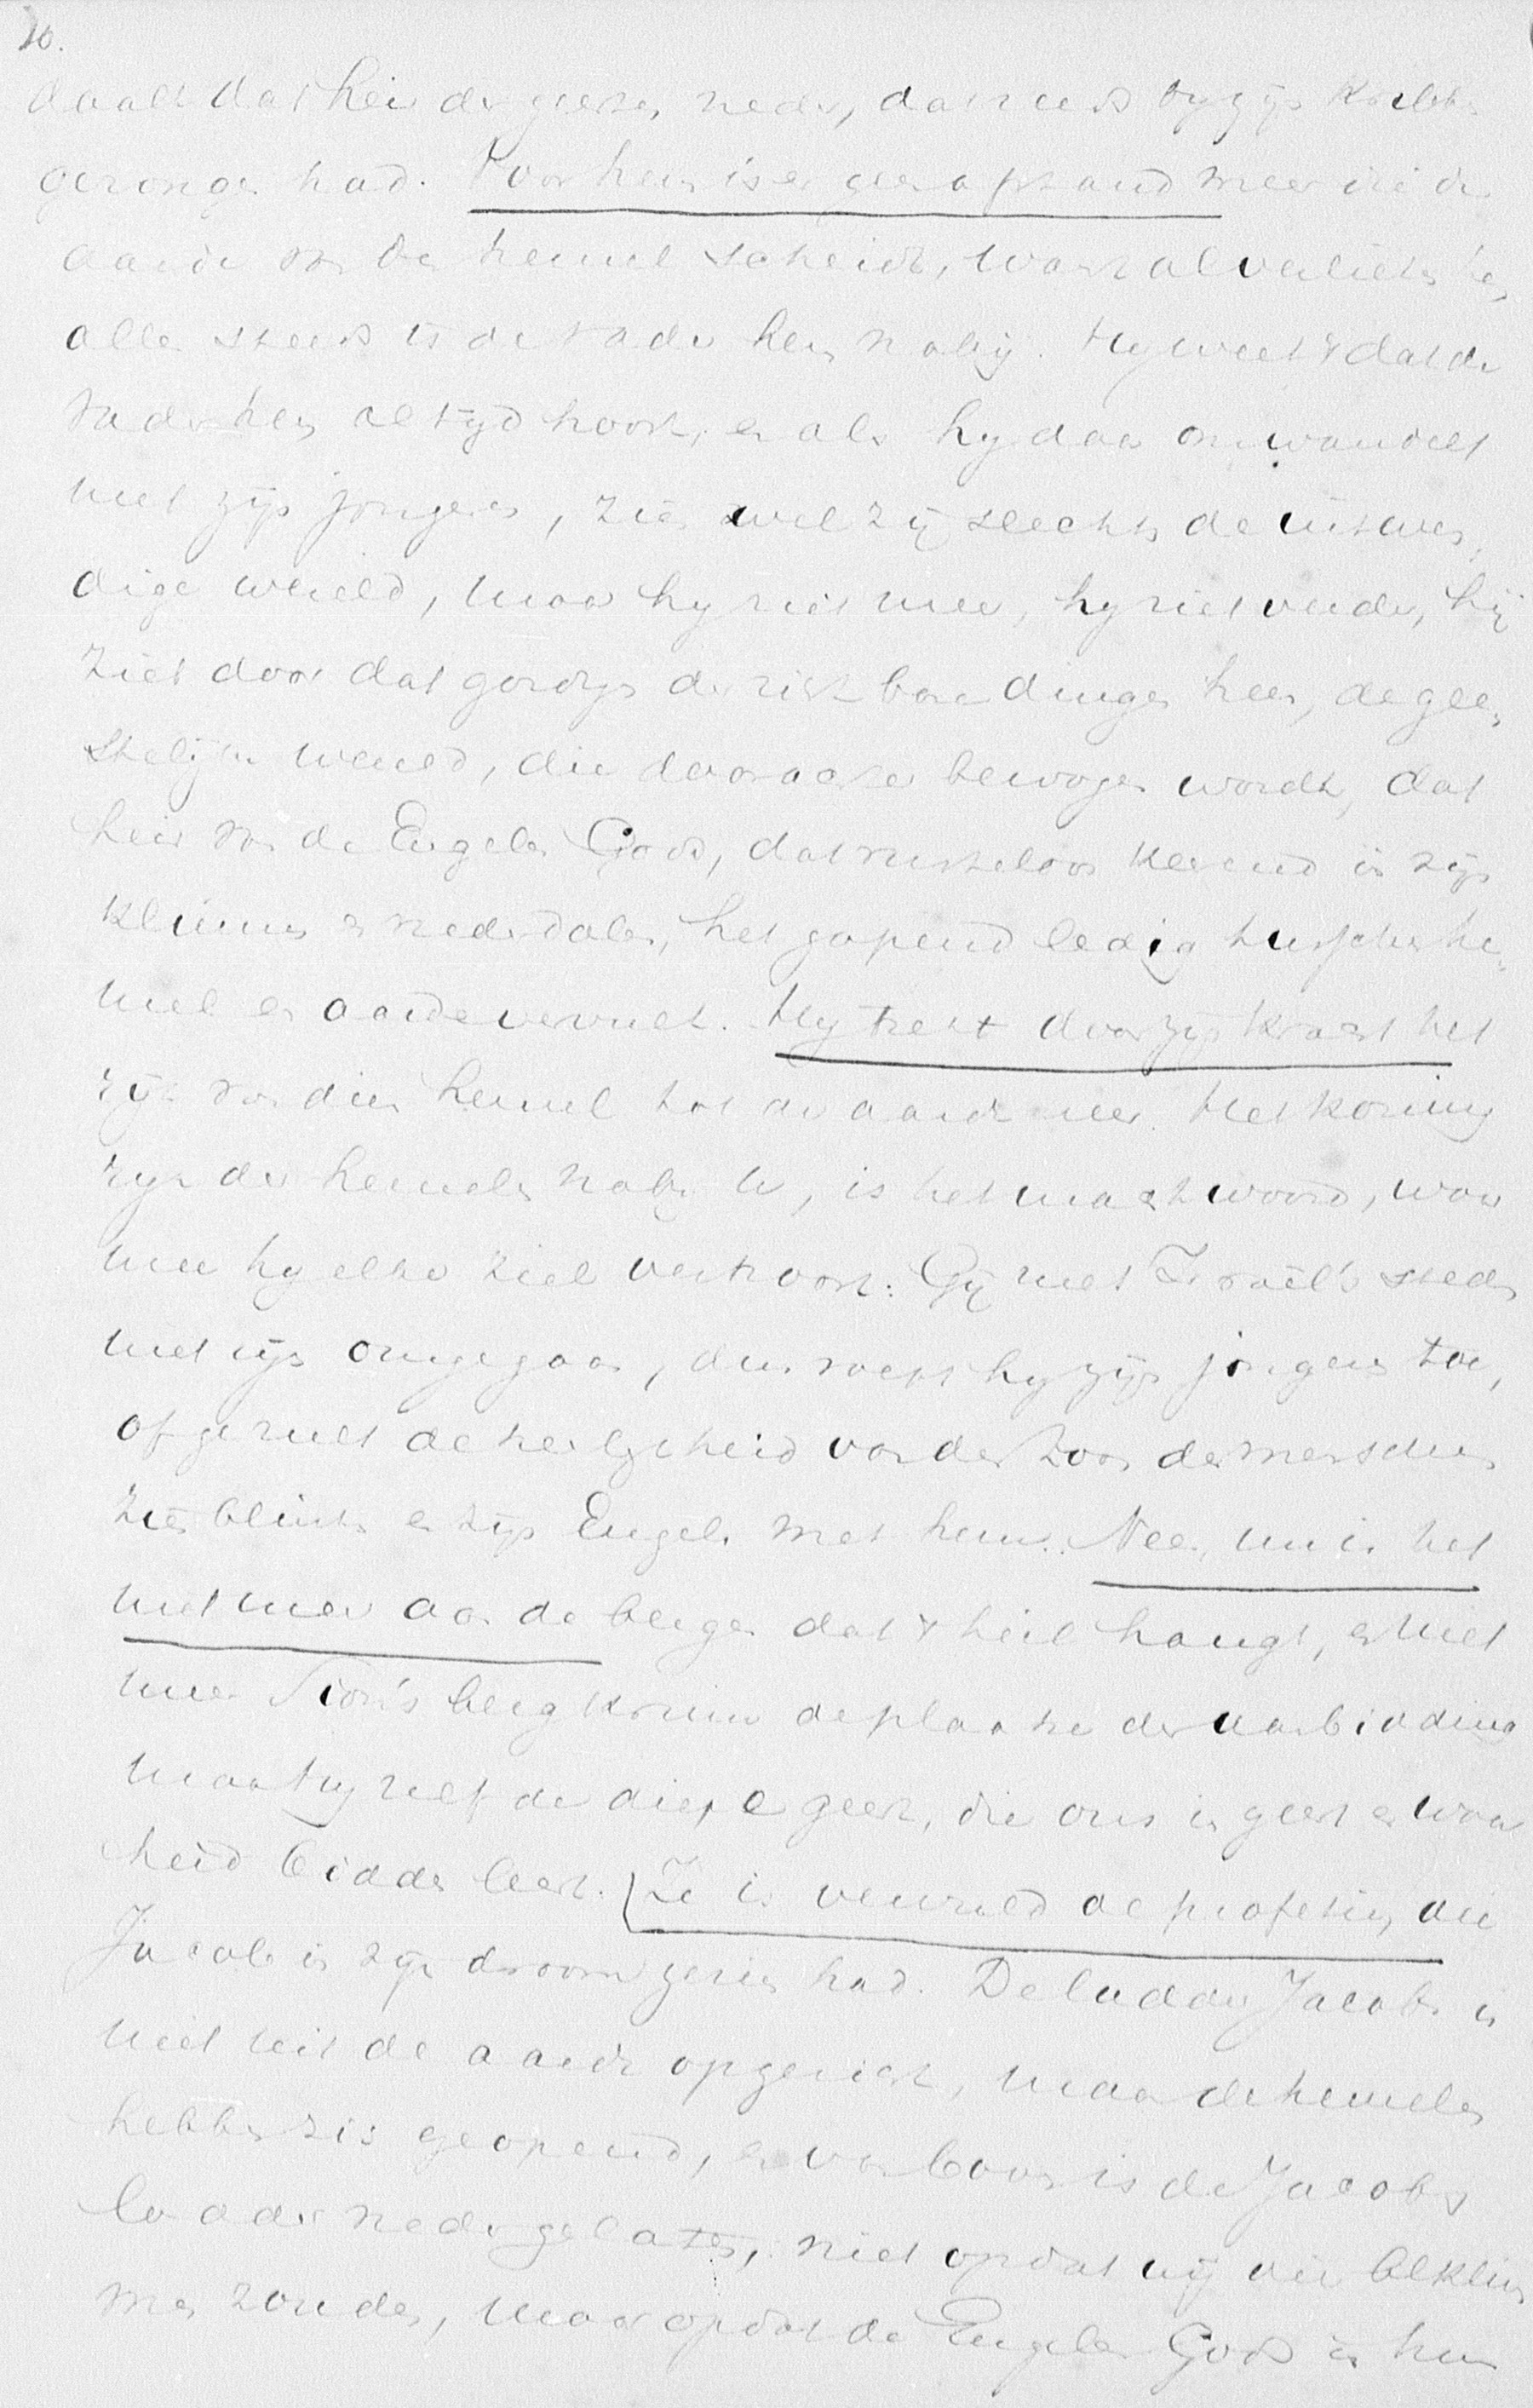 10.
daalt dat heir der geesten neder, dat reeds by zijn kribbe
gezongen had. Voor hem is er geen afstand meer die de
aarde van den hemel scheidt, want al verlieten hem
allen steeds is de Vader hem nabij. Hy weet 't dat de
Vader hem altyd hoort, en als hy daar omwandelt
met zijn jongeren, zien wel zij slechts de uitwen,
dige wereld, maar hy ziet meer, hy ziet verder, hij
ziet door dat gordijn der zichtbare dingen heen, de gee,
stelijke wereld, die daarachter bewogen wordt, dat
heir van de Engelen Gods, dat rusteloos klevend in zijn
klimmen en nederdalen, het gapend ledig tusschen he,
mel en aarde vervult. Hy trekt door zijn kracht het
rijk van dien hemel tot de aarde neer. Het koning
rijk der hemelen nabij U, is het machtwoord, waar
mee hy elke ziel vertroost: Gij zult Israëls steden
niet zijn omgegaan, dus roept hy zijn jongeren toe,
of ge zult de heerlijkheid van den Zoon des menschen
zien blinken en zijn Engelen met hem. Neen, nu is het
niet meer aan de bergen dat 't heil hangt, en niet
meer Sion's bergkruin de plaatse der aanbidding
maar hy zelf de diepe geest, die ons in geest en waar
heid bidden leert. Zo is vervuld de profetie, die
Jacob in zijn droom gezien had. De ladder Jacobs is
niet uit de aarde opgericht, maar de hemelen
hebben zich geopend, en van boven is de Jacobs
ladder nedergelaten, niet opdat wij die beklim
men zouden, maar opdat de Engelen Gods in hun